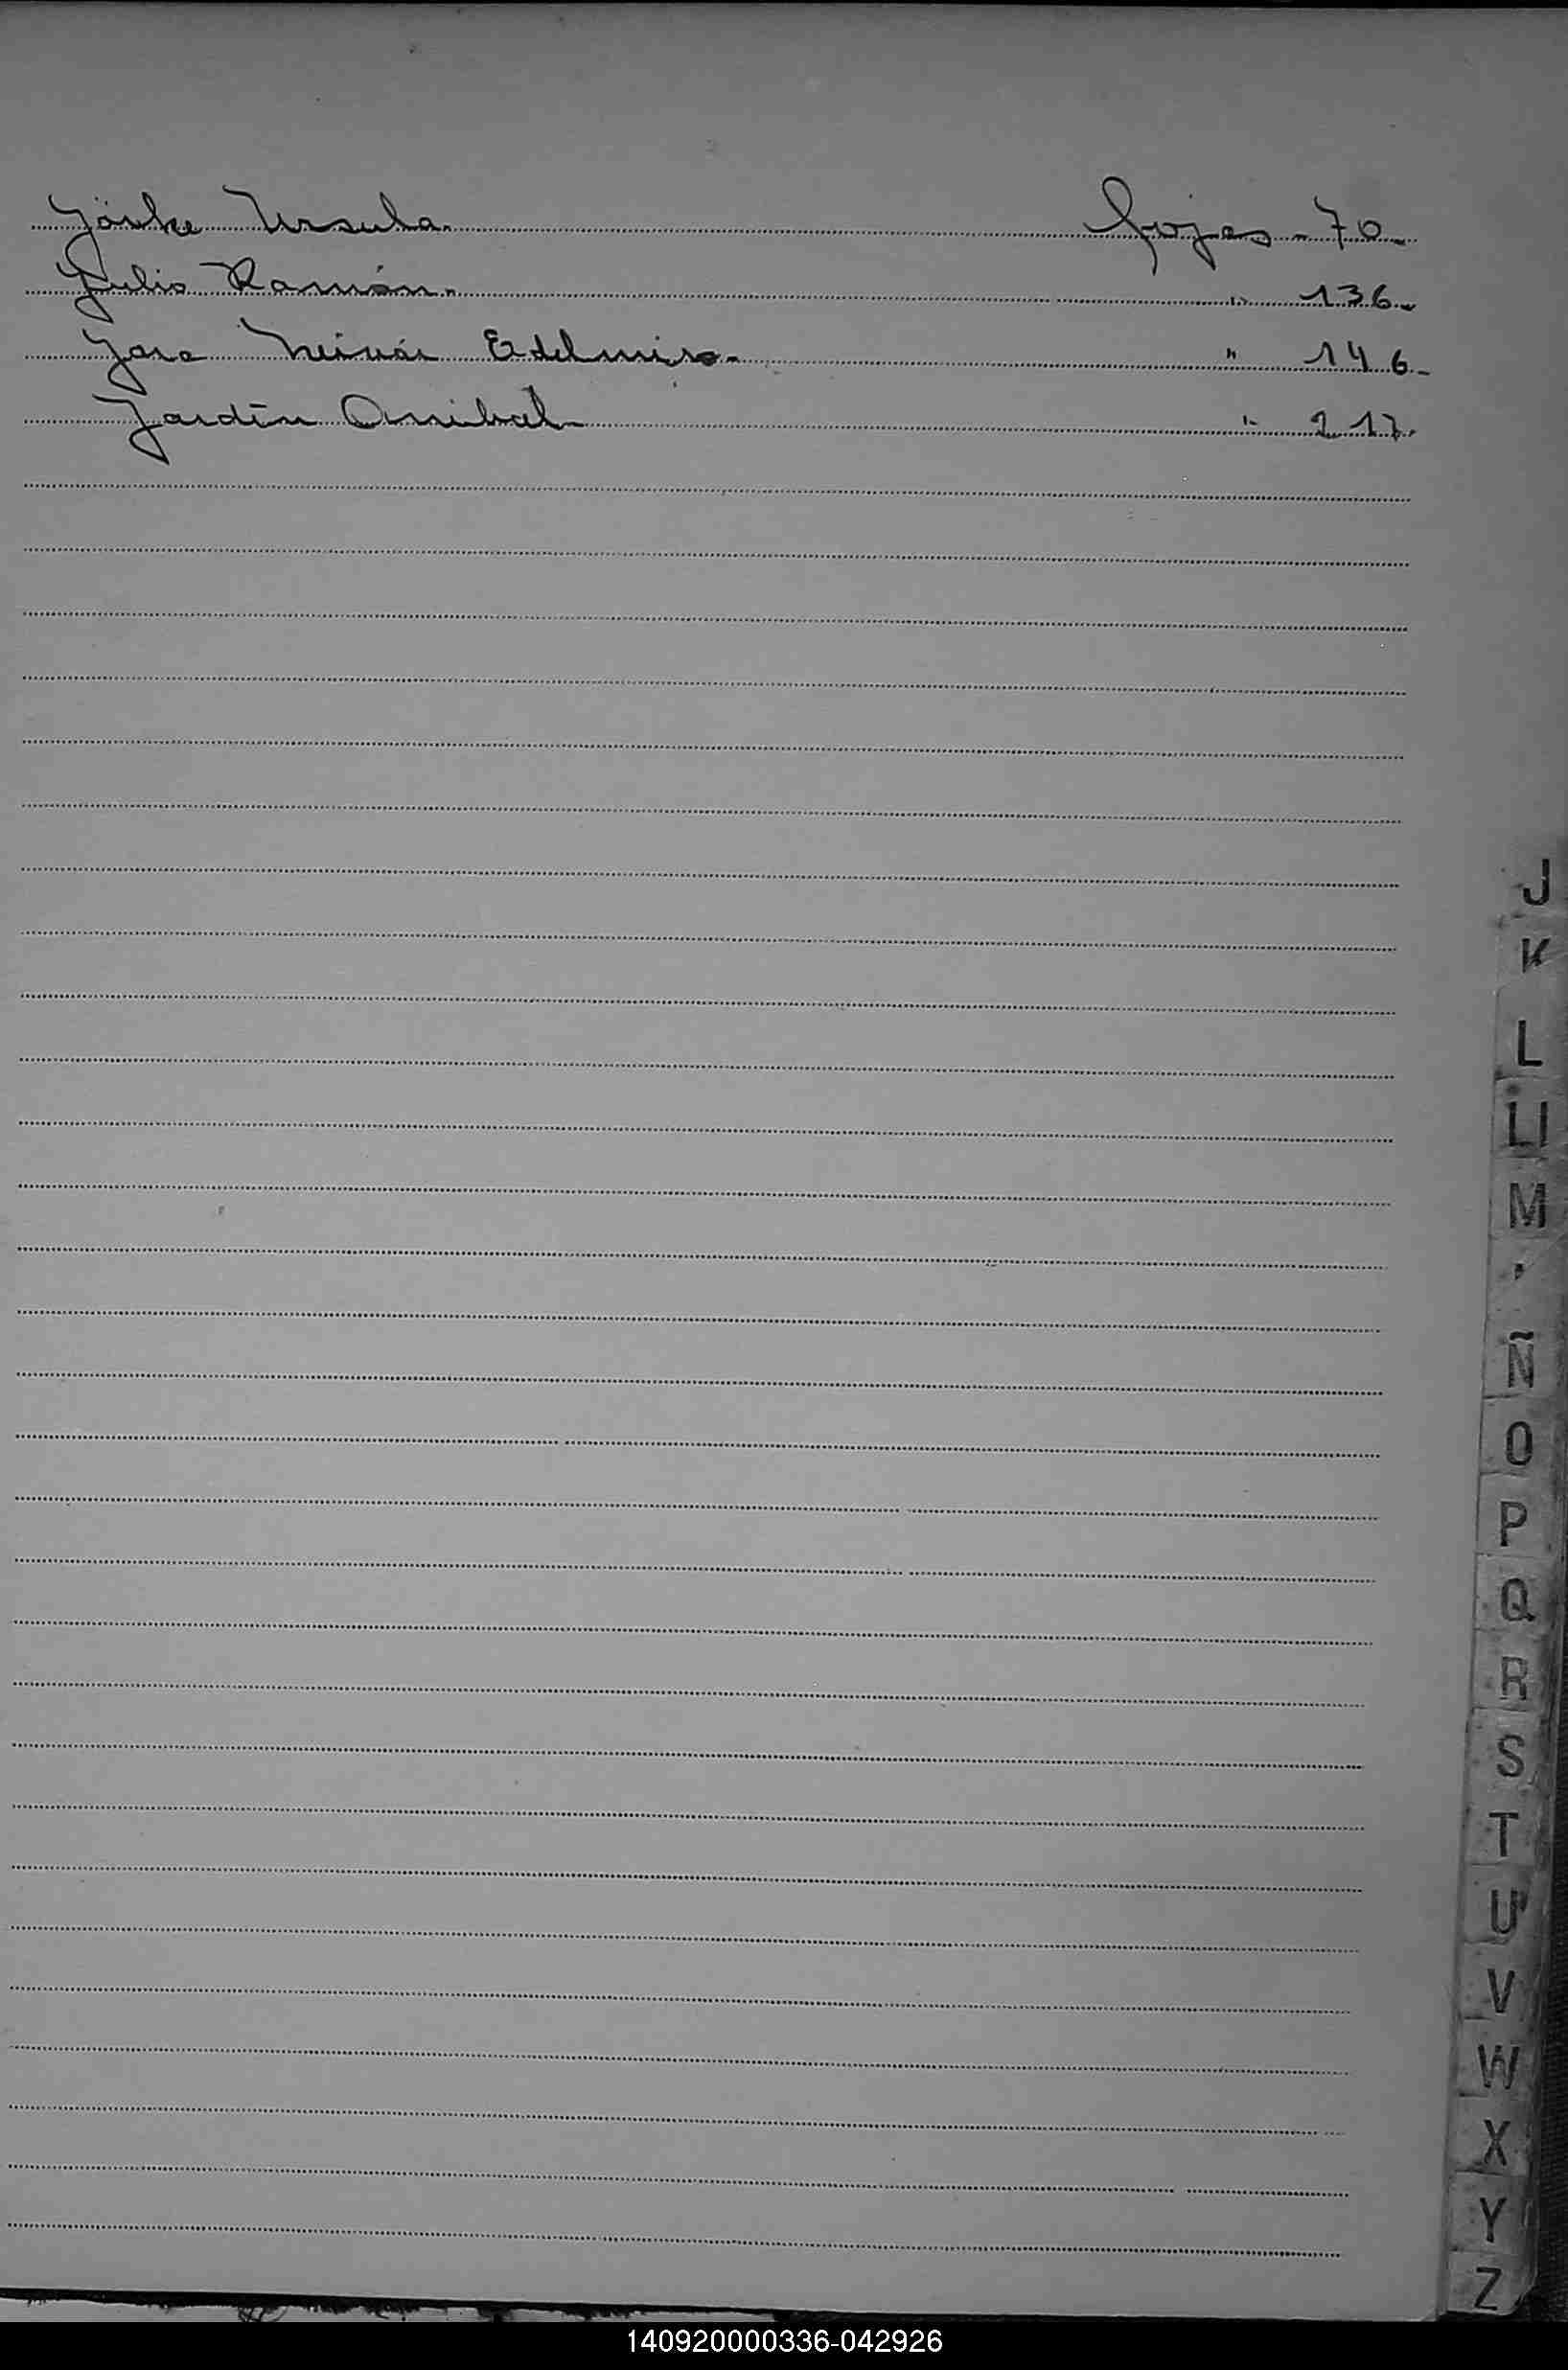 Ursula. fojas - 70.
Julio Ramón. " 136.
Jara Edelmiro. " 146.
Jardín Anibal " 217.
J
K
L
Ll
M
Ñ
O
P
Q
R
S
T
U
V
W
X
Y
Z
140920000336-042926